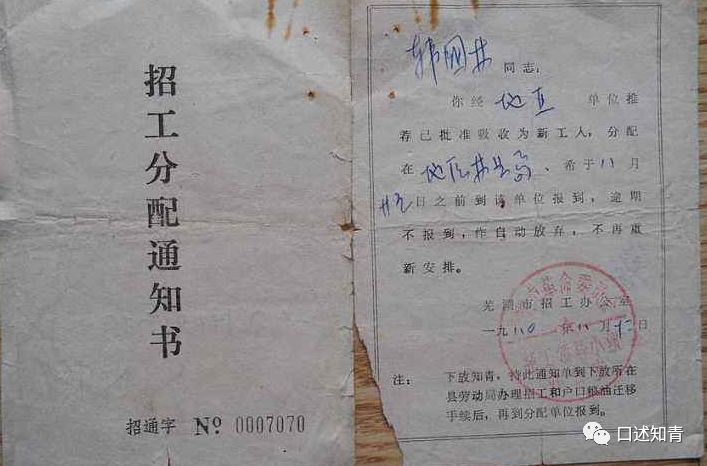 招工分配通知书
招通字 № 0007070
同志:
你经 地直 单位推
荐已批准吸收为新工人，分配
在 ，希于 八 月
日之前到该单位报到，逾期
不报到，作自动放弃，不再重
新安排。
芜湖市招工办公室
一九八〇年八月十二日
注: 下放知青，持此通知单到下放所在
县劳动局办理招工和户口粮油迁移
手续后，再到分配单位报到。
口述知青